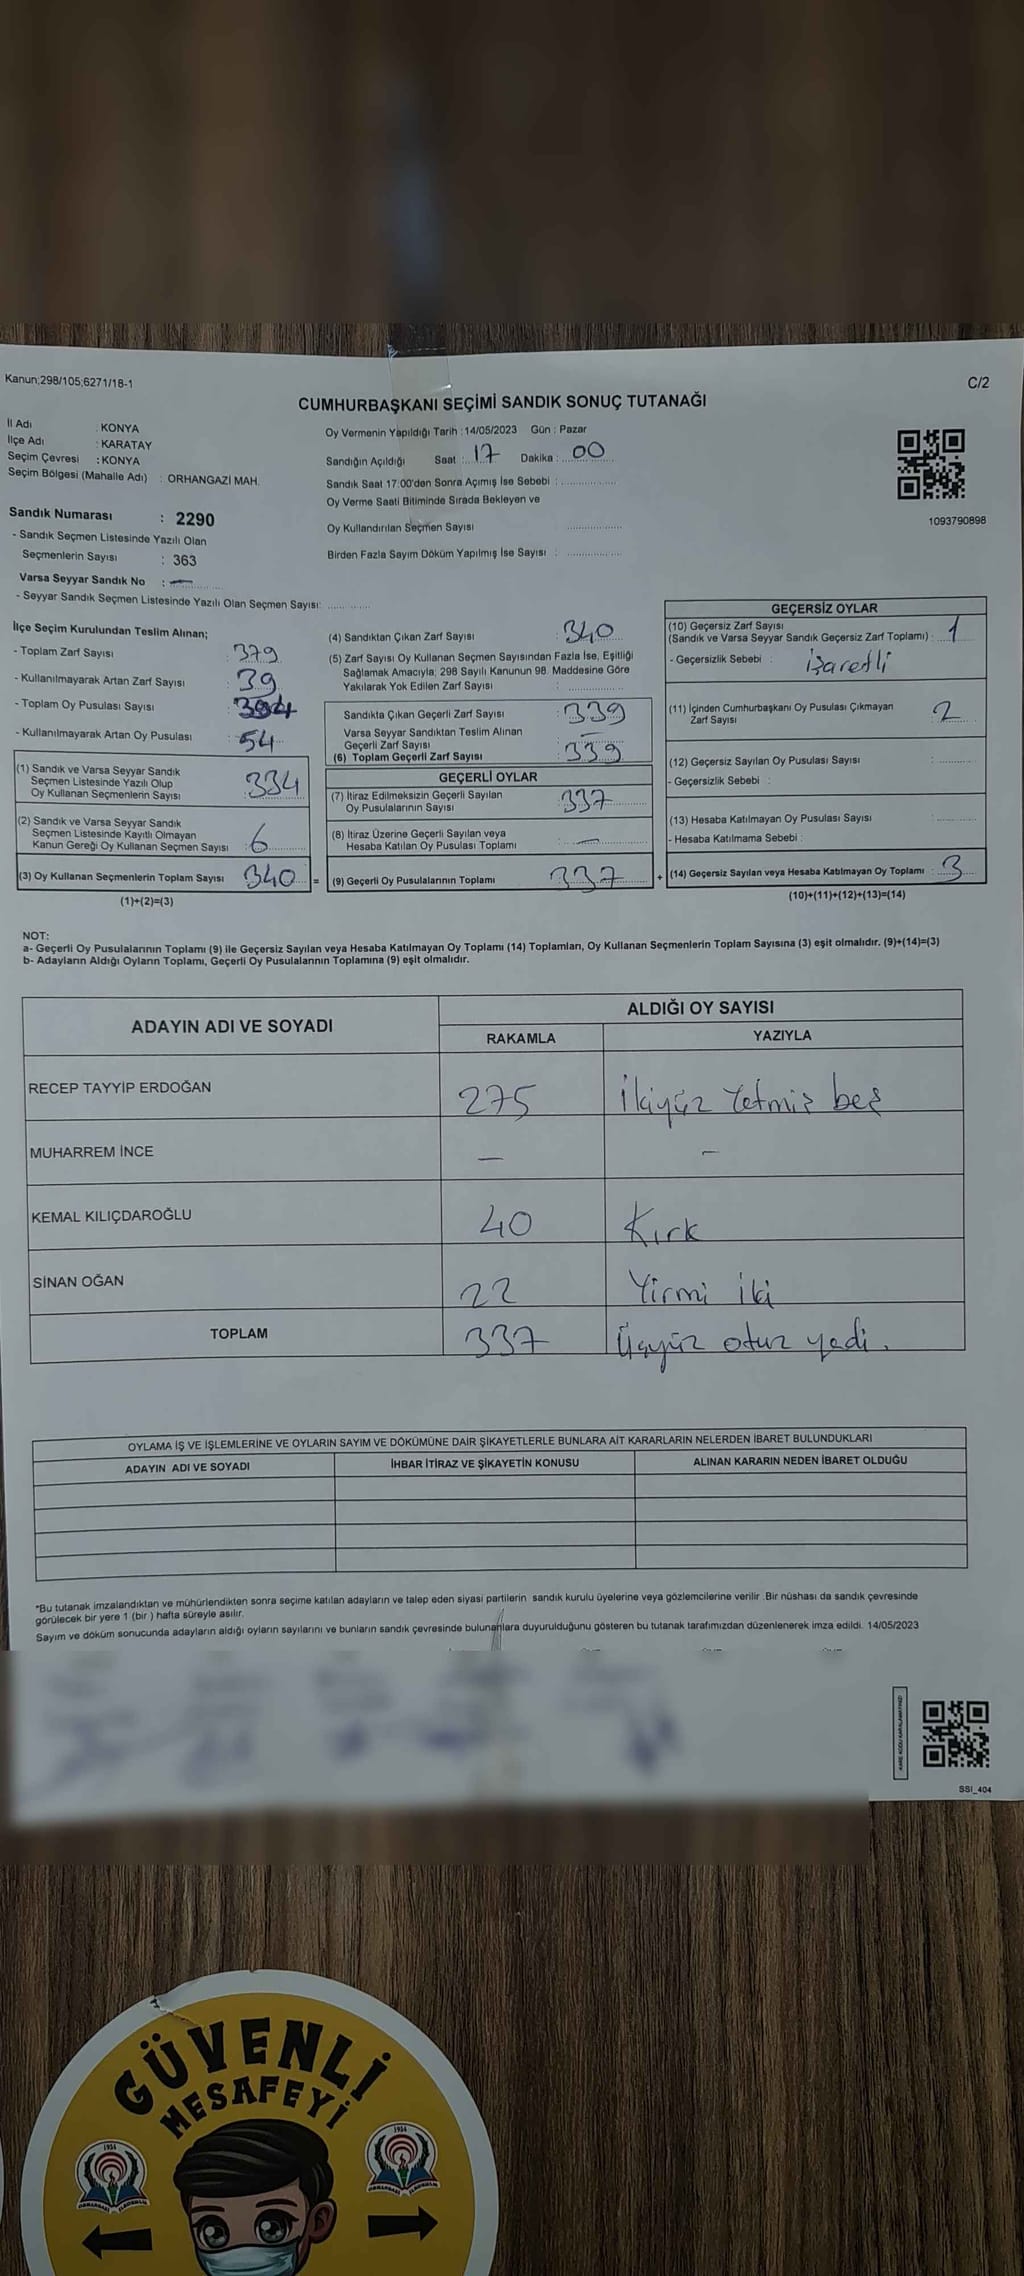 Kanun;298/105;6271/18-1
C/2
CUMHURBAŞKANI SEÇİMİ SANDIK SONUÇ TUTANAĞI
İl Adı : KONYA
İlçe Adı : KARATAY
Seçim Çevresi : KONYA
Seçim Bölgesi (Mahalle Adı) : ORHANGAZİ MAH.
Sandık Numarası : 2290
- Sandık Seçmen Listesinde Yazılı Olan
Seçmenlerin Sayısı : 363
Varsa Seyyar Sandık No : —
- Seyyar Sandık Seçmen Listesinde Yazılı Olan Seçmen Sayısı: ............
Oy Vermenin Yapıldığı Tarih : 14/05/2023 Gün : Pazar
Sandığın Açıldığı Saat : 17 Dakika : 00
Sandık Saat 17:00'den Sonra Açımış İse Sebebi : ................
Oy Verme Saati Bitiminde Sırada Bekleyen ve
Oy Kullandırılan Seçmen Sayısı ................
Birden Fazla Sayım Döküm Yapılmış İse Sayısı : ................
1093790898
İlçe Seçim Kurulundan Teslim Alınan;
- Toplam Zarf Sayısı : 379
- Kullanılmayarak Artan Zarf Sayısı : 39
- Toplam Oy Pusulası Sayısı : 394
- Kullanılmayarak Artan Oy Pusulası : 54
(1) Sandık ve Varsa Seyyar Sandık
Seçmen Listesinde Yazılı Olup
Oy Kullanan Seçmenlerin Sayısı : 334
(2) Sandık ve Varsa Seyyar Sandık
Seçmen Listesinde Kayıtlı Olmayan
Kanun Gereği Oy Kullanan Seçmen Sayısı : 6
(3) Oy Kullanan Seçmenlerin Toplam Sayısı 340 =
(1)+(2)=(3)
(4) Sandıktan Çıkan Zarf Sayısı : 340
(5) Zarf Sayısı Oy Kullanan Seçmen Sayısından Fazla İse, Eşitliği
Sağlamak Amacıyla, 298 Sayılı Kanunun 98. Maddesine Göre
Yakılarak Yok Edilen Zarf Sayısı : ................
Sandıkta Çıkan Geçerli Zarf Sayısı : 339
Varsa Seyyar Sandıktan Teslim Alınan
Geçerli Zarf Sayısı —
(6) Toplam Geçerli Zarf Sayısı : 339
GEÇERLİ OYLAR
(7) İtiraz Edilmeksizin Geçerli Sayılan
Oy Pusulalarının Sayısı : 337
(8) İtiraz Üzerine Geçerli Sayılan veya
Hesaba Katılan Oy Pusulası Toplamı : —
(9) Geçerli Oy Pusulalarının Toplamı 337 +
GEÇERSİZ OYLAR
(10) Geçersiz Zarf Sayısı
(Sandık ve Varsa Seyyar Sandık Geçersiz Zarf Toplamı) : 1
- Geçersizlik Sebebi : İşaretli
(11) İçinden Cumhurbaşkanı Oy Pusulası Çıkmayan
Zarf Sayısı : 2
(12) Geçersiz Sayılan Oy Pusulası Sayısı : ............
- Geçersizlik Sebebi :
(13) Hesaba Katılmayan Oy Pusulası Sayısı : ............
- Hesaba Katılmama Sebebi :
(14) Geçersiz Sayılan veya Hesaba Katılmayan Oy Toplamı : 3
(10)+(11)+(12)+(13)=(14)
NOT:
a- Geçerli Oy Pusulalarının Toplamı (9) ile Geçersiz Sayılan veya Hesaba Katılmayan Oy Toplamı (14) Toplamları, Oy Kullanan Seçmenlerin Toplam Sayısına (3) eşit olmalıdır. (9)+(14)=(3)
b- Adayların Aldığı Oyların Toplamı, Geçerli Oy Pusulalarının Toplamına (9) eşit olmalıdır.
ADAYIN ADI VE SOYADI
ALDIĞI OY SAYISI
RAKAMLA YAZIYLA
RECEP TAYYİP ERDOĞAN 275 İkiyüz Yetmiş beş
MUHARREM İNCE — —
KEMAL KILIÇDAROĞLU 40 Kırk
SİNAN OĞAN 22 Yirmi İki
TOPLAM 337 Üçyüz otuz yedi.
OYLAMA İŞ VE İŞLEMLERİNE VE OYLARIN SAYIM VE DÖKÜMÜNE DAİR ŞİKAYETLERLE BUNLARA AİT KARARLARIN NELERDEN İBARET BULUNDUKLARI
ADAYIN ADI VE SOYADI İHBAR İTİRAZ VE ŞİKAYETİN KONUSU ALINAN KARARIN NEDEN İBARET OLDUĞU
*Bu tutanak imzalandıktan ve mühürlendikten sonra seçime katılan adayların ve talep eden siyasi partilerin sandık kurulu üyelerine veya gözlemcilerine verilir. Bir nüshası da sandık çevresinde
görülecek bir yere 1 (bir ) hafta süreyle asılır.
Sayım ve döküm sonucunda adayların aldığı oyların sayılarını ve bunların sandık çevresinde bulunanlara duyurulduğunu gösteren bu tutanak tarafımızdan düzenlenerek imza edildi. 14/05/2023
KARE KODU KARALAMAYINIZ!
SSI_404
GÜVENLİ
MESAFEYİ
1954
1954